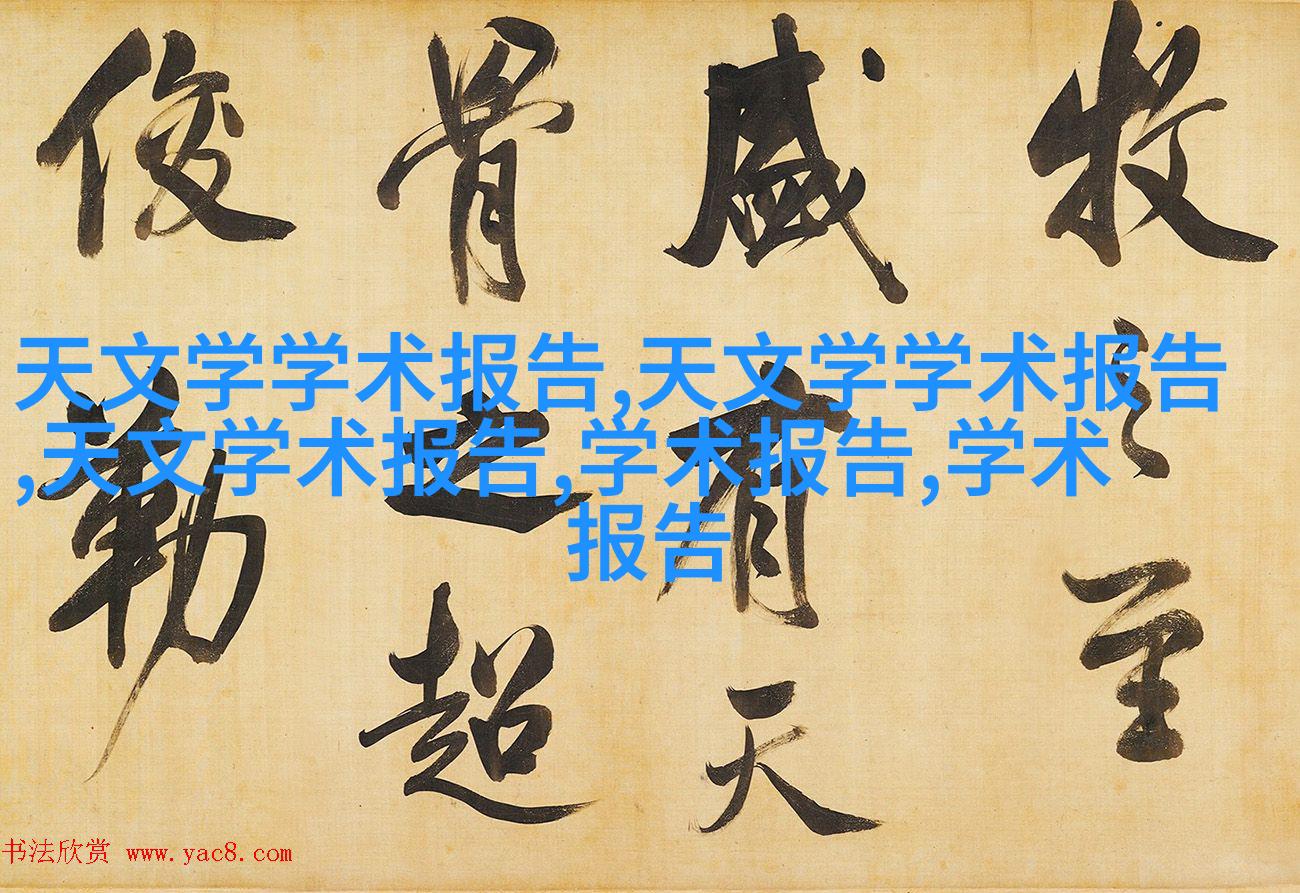 牧之至
盛有天
骨之超
俊勒
天文学学术报告,天文学学术报告
,天文学术报告,学术报告,学术
报告
书法欣赏 www.yac8.com